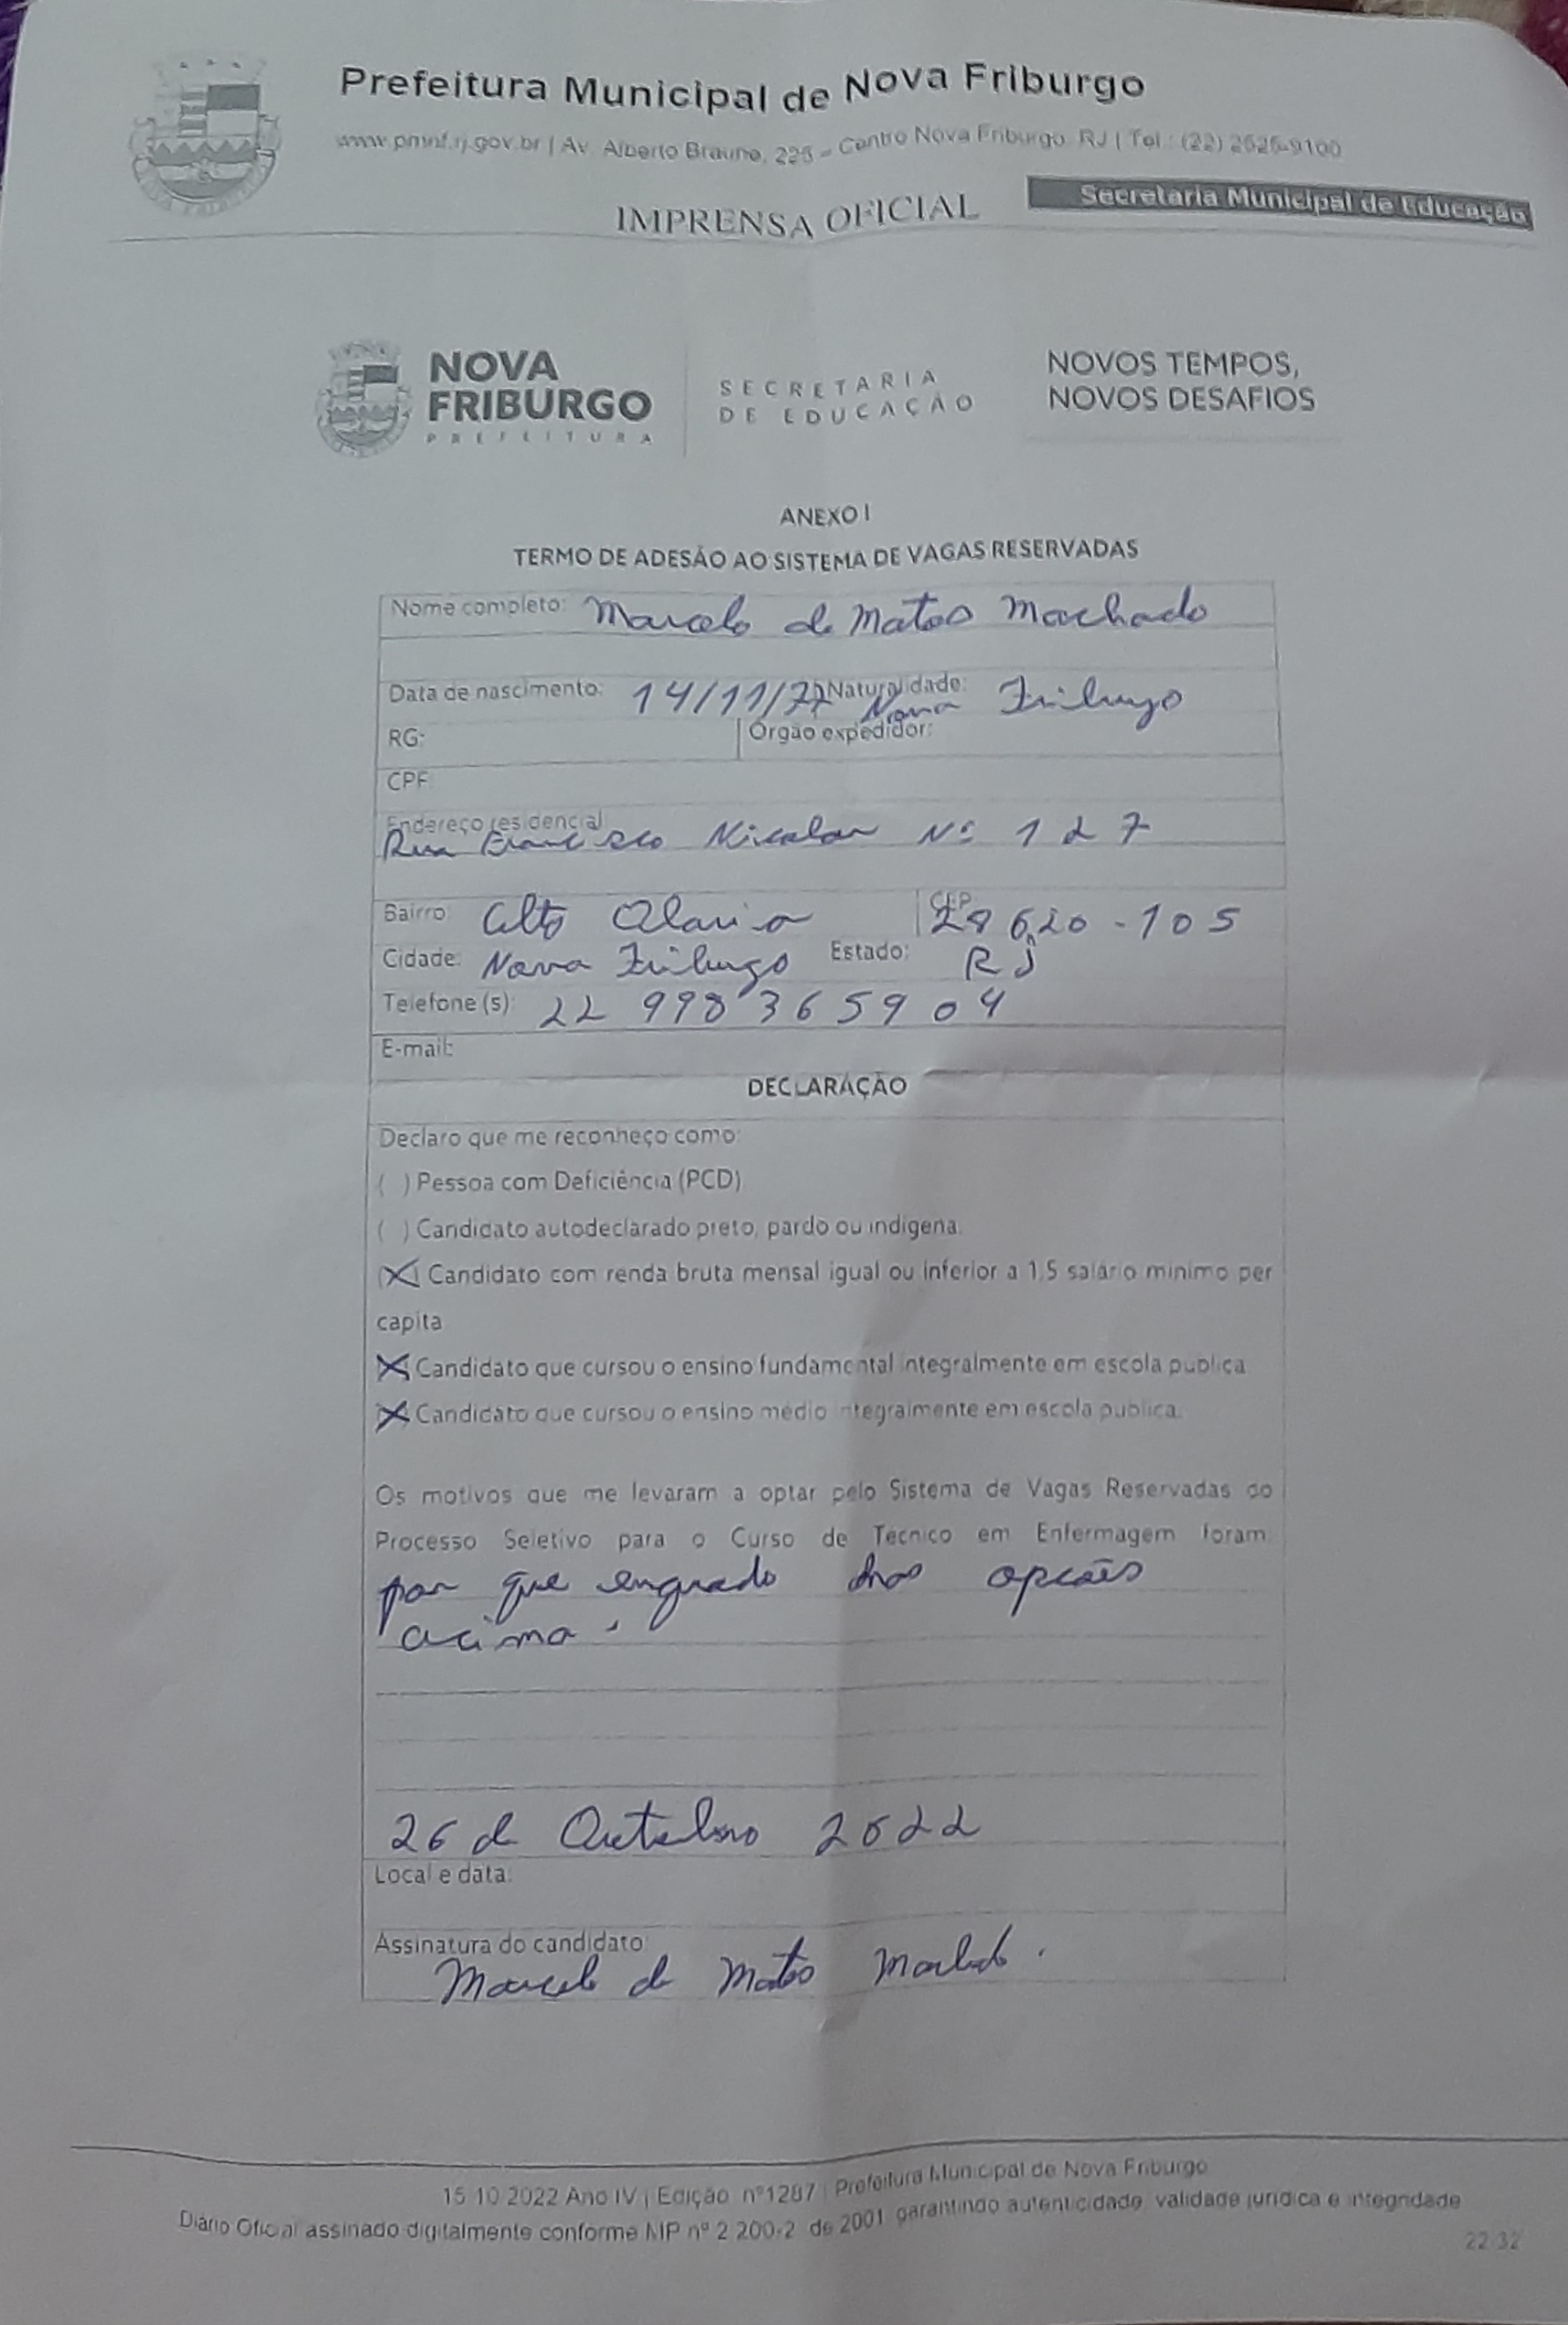 Prefeitura Municipal de Nova Friburgo
www.pmnf.rj.gov.br | Av. Alberto Braune, 225 – Centro Nova Friburgo, RJ | Tel.: (22) 2525-9100
IMPRENSA OFICIAL
Secretaria Municipal de Educação
NOVA
FRIBURGO
PREFEITURA
SECRETARIA
DE EDUCAÇÃO
NOVOS TEMPOS,
NOVOS DESAFIOS
ANEXO I
TERMO DE ADESÃO AO SISTEMA DE VAGAS RESERVADAS
Nome completo: Marcelo de Matos Machado
Data de nascimento: 14/11/77 Naturalidade: Nova Friburgo
RG: Órgão expedidor:
CPF
Endereço residencial
Rua Francisco Nº 127
Bairro: Alto Olaria CEP 28620-105
Cidade: Nova Friburgo Estado: RJ
Telefone (s): 22 998365904
E-mail:
DECLARAÇÃO
Declaro que me reconheço como:
( ) Pessoa com Deficiência (PCD)
( ) Candidato autodeclarado preto, pardo ou indígena.
(X) Candidato com renda bruta mensal igual ou inferior a 1,5 salário mínimo per
capita
(X) Candidato que cursou o ensino fundamental integralmente em escola pública
(X) Candidato que cursou o ensino médio integralmente em escola pública.
Os motivos que me levaram a optar pelo Sistema de Vagas Reservadas do
Processo Seletivo para o Curso de Técnico em Enfermagem foram:
por que enquado nas opcões
acima.
26 de Outubro 2022
Local e data:
Assinatura do candidato:
Marcelo de Matos Machado.
15.10.2022 Ano IV | Edição nº1287 | Prefeitura Municipal de Nova Friburgo
Diário Oficial assinado digitalmente conforme MP nº 2.200-2, de 2001, garantindo autenticidade, validade jurídica e integridade
22/32